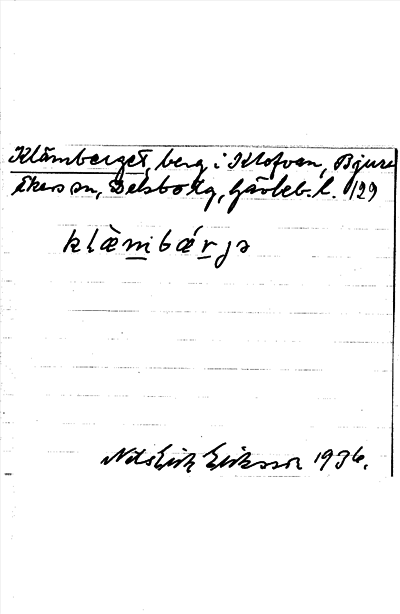 Klämberget, berg i Klofven, Bjur
åkers sn, Delsbo tg, Gävleb. l. 129
klæ̀mbǽrjə
Nils Erik Eriksson 1936.